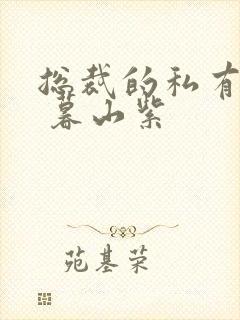 总裁的私有
暮山紫
苑基荣